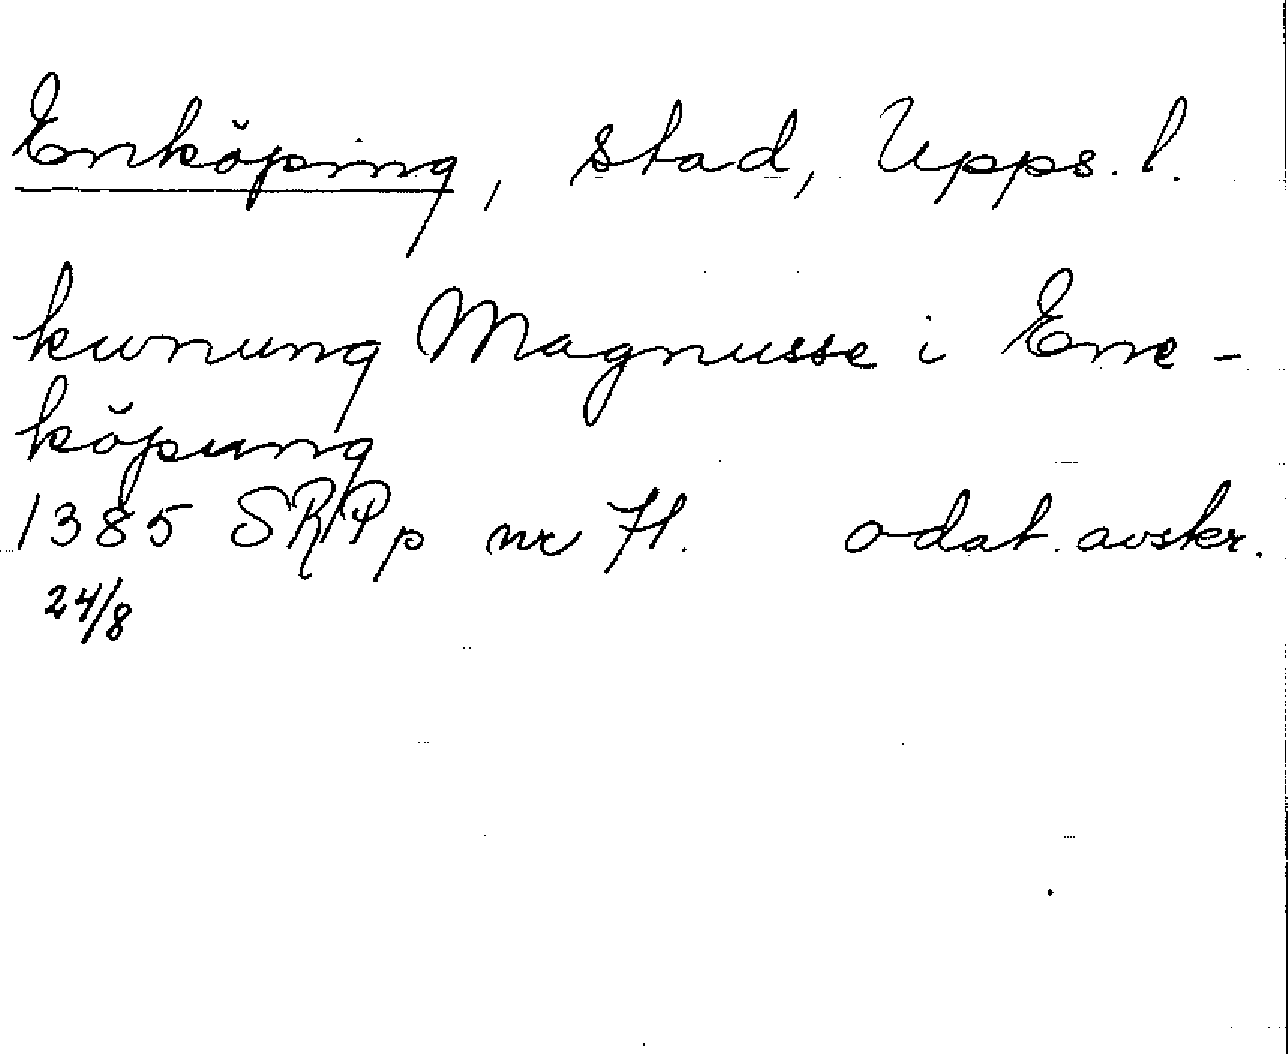 Enköping, stad, Upps. l.
kwnung Magnusse i Ene-
köpung
1385 SRPp nr 71. odat. avskr.
24/8